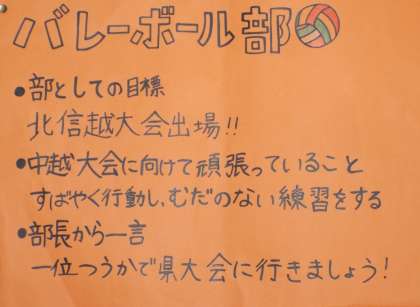 バレーボール部
●部としての目標
北信越大会出場!!
●中越大会に向けて頑張っていること
すばやく行動し、むだのない練習をする
●部長から一言
一位つうかで県大会に行きましょう!